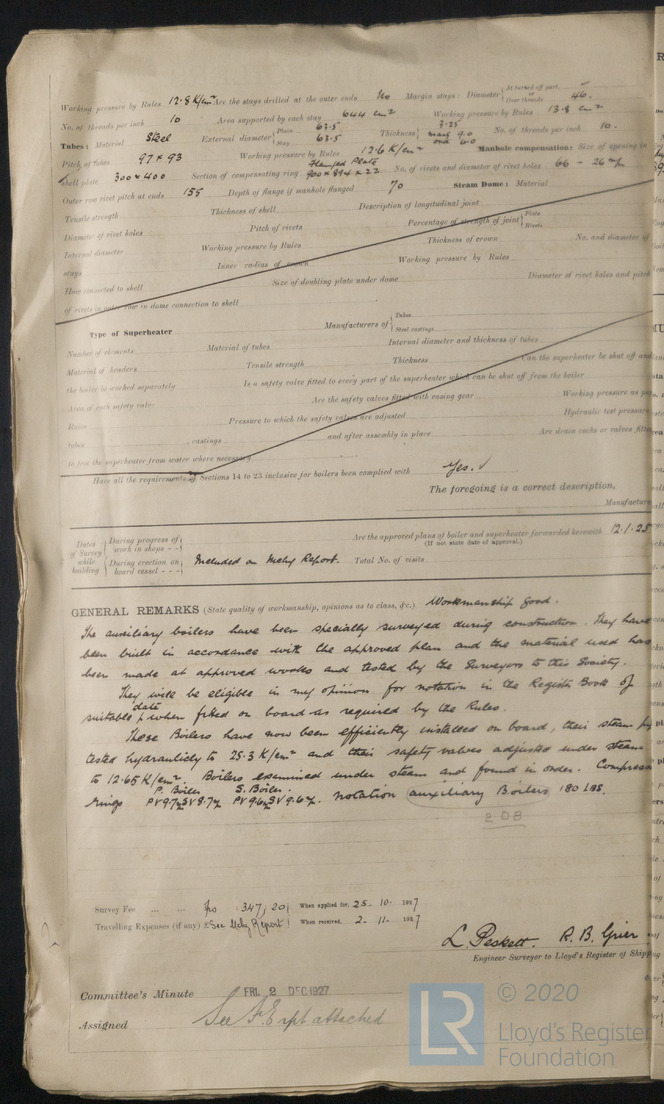 Working pressure by Rules 12.8 K/cm² Are the stays drilled at the outer ends No Margin stays: Diameter { At turned off part, or Over threads 46.
No. of threads per inch 10 Area supported by each stay 644 cm² Working pressure by Rules 13.8 cm²
Tubes: Material Steel External diameter { Plain 63.5 Stay 63.5 Thickness { 3.25 6.0 No. of threads per inch 10.
Pitch of tubes 97 × 93 Working pressure by Rules 12.6 K/cm² Manhole compensation: Size of opening in
shell plate 300 × 400 Section of compensating ring Flanged Plate 900 × 814 × 22 No. of rivets and diameter of rivet holes 66 - 26 m/m
Outer row rivet pitch at ends 155 Depth of flange if manhole flanged 70 Steam Dome: Material
Tensile strength Thickness of shell Description of longitudinal joint
Diameter of rivet holes Pitch of rivets Percentage of strength of joint { Plate Rivets
Internal diameter Working pressure by Rules Thickness of crown No. and diameter of
stays Inner radius of crown Working pressure by Rules
How connected to shell Size of doubling plate under dome Diameter of rivet holes and pitch
of rivets in outer row in dome connection to shell
Type of Superheater Manufacturers of { Tubes Steel castings
Number of elements Material of tubes Internal diameter and thickness of tubes
Material of headers Tensile strength Thickness Can the superheater be shut off and
the boiler be worked separately Is a safety valve fitted to every part of the superheater which can be shut off from the boiler
Area of each safety valve Are the safety valves fitted with easing gear Working pressure as per
Rules Pressure to which the safety valves are adjusted Hydraulic test pressure
tubes , castings and after assembly in place Are drain cocks or valves fitted
to free the superheater from water where necessary
Have all the requirements of Sections 14 to 23 inclusive for boilers been complied with Yes. ✓
The foregoing is a correct description,
Manufacture
Dates of Survey while building { During progress of work in shops - - During erection on board vessel - - - Included on Mchy Report.
Are the approved plans of boiler and superheater forwarded herewith 12.1.25
(If not state date of approval.)
Total No. of visits
GENERAL REMARKS (State quality of workmanship, opinions as to class, &c.) Workmanship good.
The auxiliary boilers have been specially surveyed during construction. They have
been built in accordance with the approved plan and the material used has
been made at approved works and tested by the Surveyors to this Society.
They will be eligible in my opinion for notation in the Register Book of
suitable date when fitted on board as required by the Rules.
These Boilers have now been efficiently installed on board, their steam
tested hydraulicly to 25.3 K/cm² and their safety valves adjusted under steam
to 12.65 K/cm². Boilers examined under steam and found in order. Compress
rings P. Boiler PV 9.7 SV 8.7 S. Boiler PV 9.6 SV 9.6. Notation auxiliary Boilers 180 LBS.
2 D B
Survey Fee ... ... 347, 20 When applied for, 25. 10. 1927
Travelling Expenses (if any) £ See Mchy Report When received, 2. 11. 1927
L. Peskett. R. B. Grier
Engineer Surveyor to Lloyd's Register of Shipping
Committee's Minute FRI. 2 DEC 1927
Assigned See F.E. rpt attached
© 2020
LR Lloyd's Register
Foundation